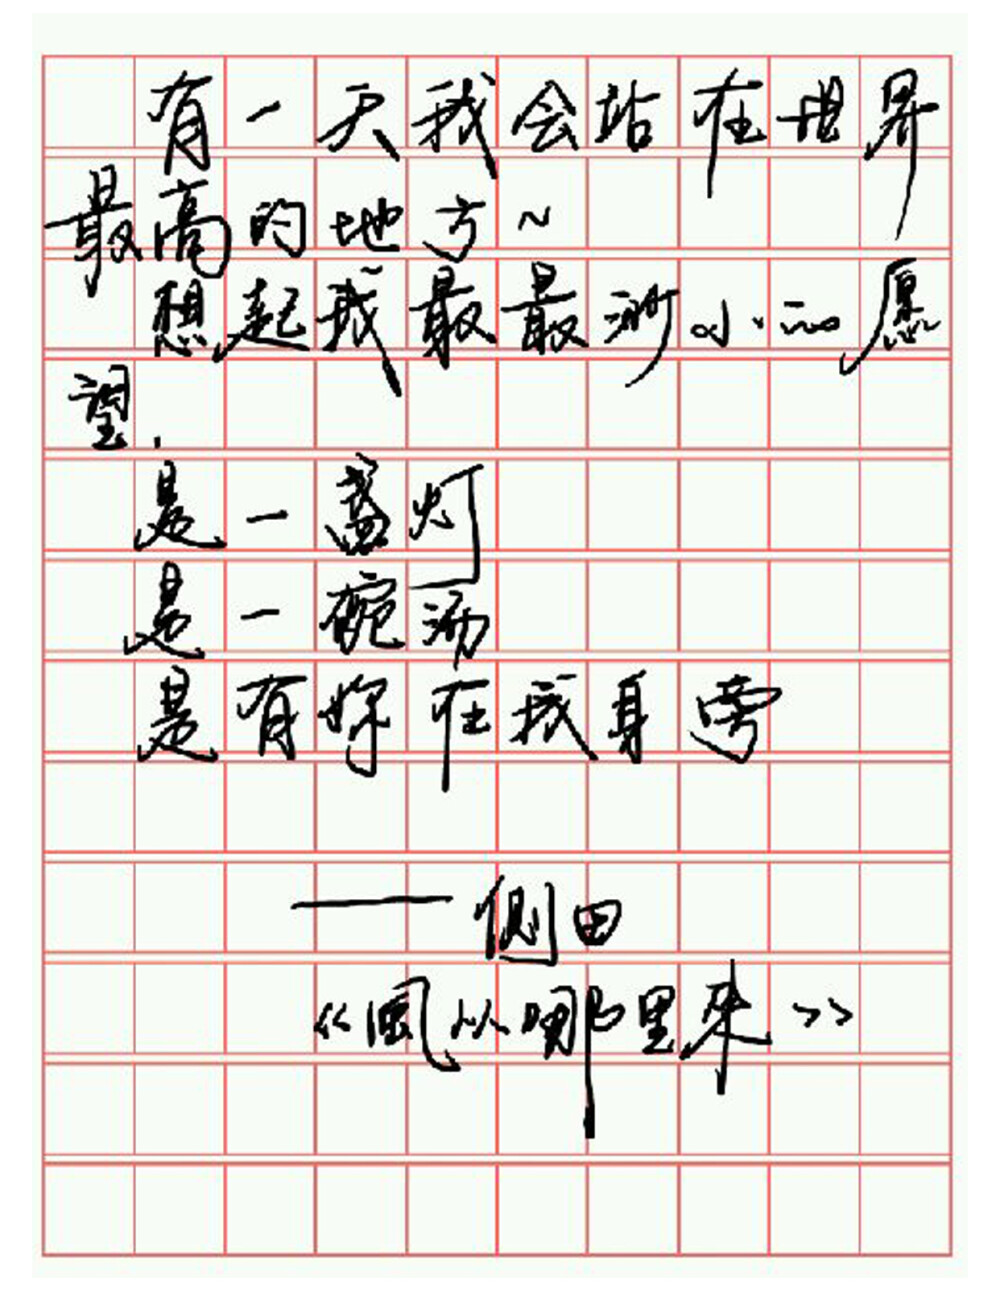 有一天我会站在世界
最高的地方~
想起我最最渺小的愿
望.
是一盏灯
是一碗汤
是有妳在我身旁
——侧田
《風从哪里来》